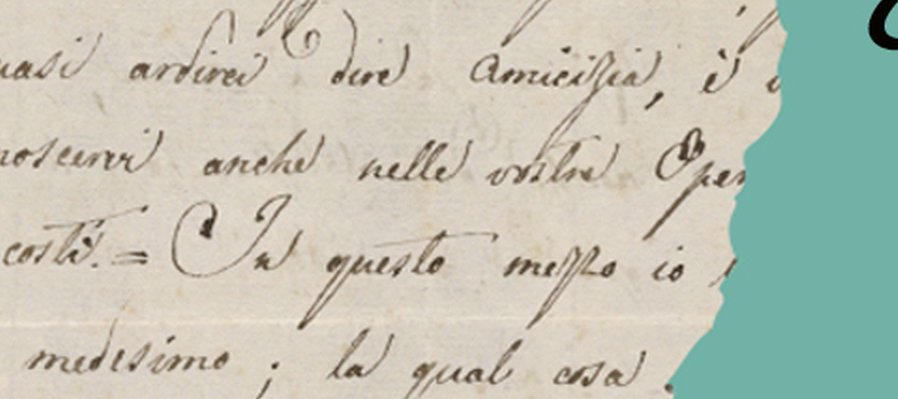 uasi ardirei dire Amicizia, è
noscervi anche nelle vostre Oper
costì. = In questo mezzo io
medesimo ; la qual cosa